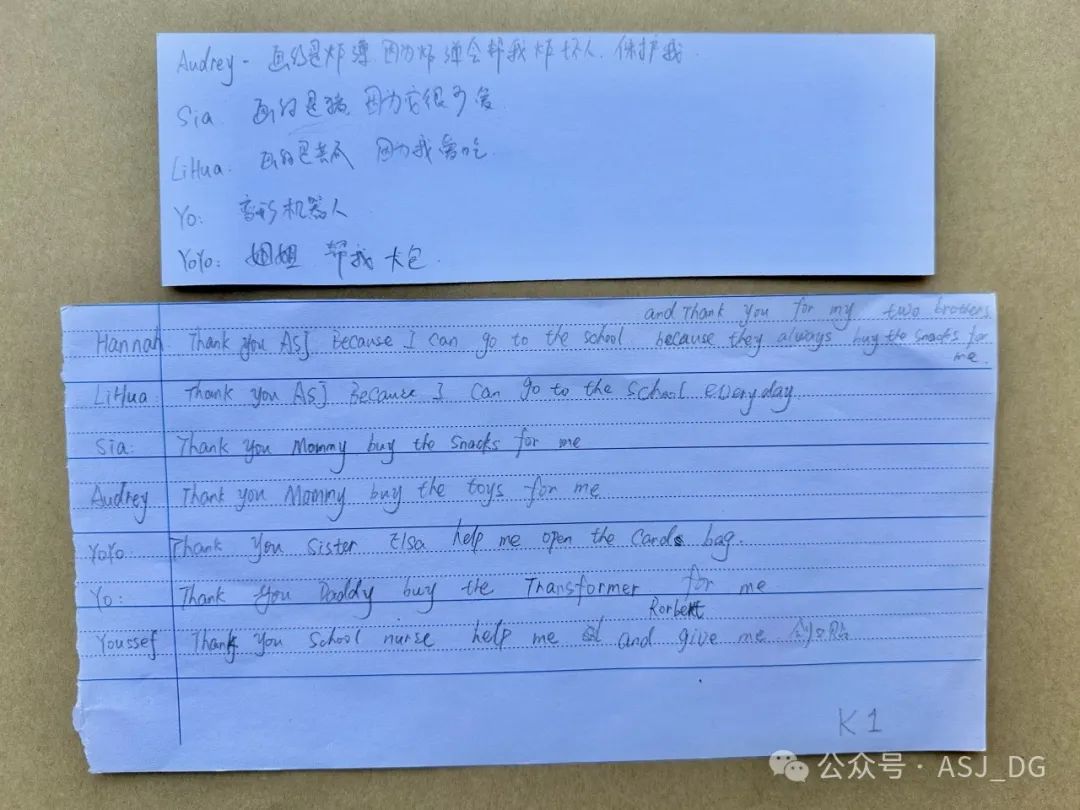 Audrey - 画的是炸弹 因为炸弹会帮我炸坏人. 保护我.
Sia. 画的是猫 因为它很可爱
LiHua. 画的是黄瓜 因为我爱吃.
Yo: 变形机器人
YoYo: 姐姐 帮我 卡包.
and Thank you for my two brothers
Hannah Thank you ASJ Because I can go to the school because they always buy the snacks for
me.
LiHua Thank you ASJ Because I can go to the school everyday
Sia: Thank you Mommy buy the snacks for me
Audrey Thank you Mommy buy the toys for me
YoYo Thank you sister Elsa help me open the cards bag.
Yo: Thank you Daddy buy the Transformer for me
Rorbert
Youssef Thank you school nurse help me and give me 创口贴
K1
公众号 · ASJ_DG